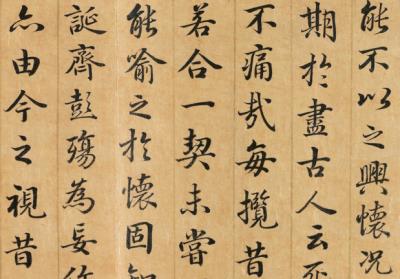 能不以之興懷況
期於盡古人云死
不痛哉每攬昔
若合一契未嘗
能喻之於懷固知
誕齊彭殤為妄作
亦由今之視昔